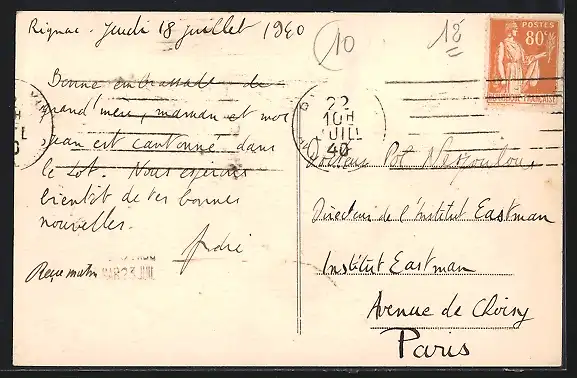 Rignac - Jeudi 18 juillet 1940
10
18
POSTES
80c
RÉPUBLIQUE FRANÇAISE
22
10H
JUIL
40
Bonne embrassade de
grand'mère, maman et moi
Jean est cantonné dans
le Lot. Nous espérons
bientôt de tes bonnes
nouvelles.
André
Reçu matin MAR 23 JUIL
Docteur Pol
Directeur de l'Institut Eastman
Institut Eastman
Avenue de Choisy
Paris